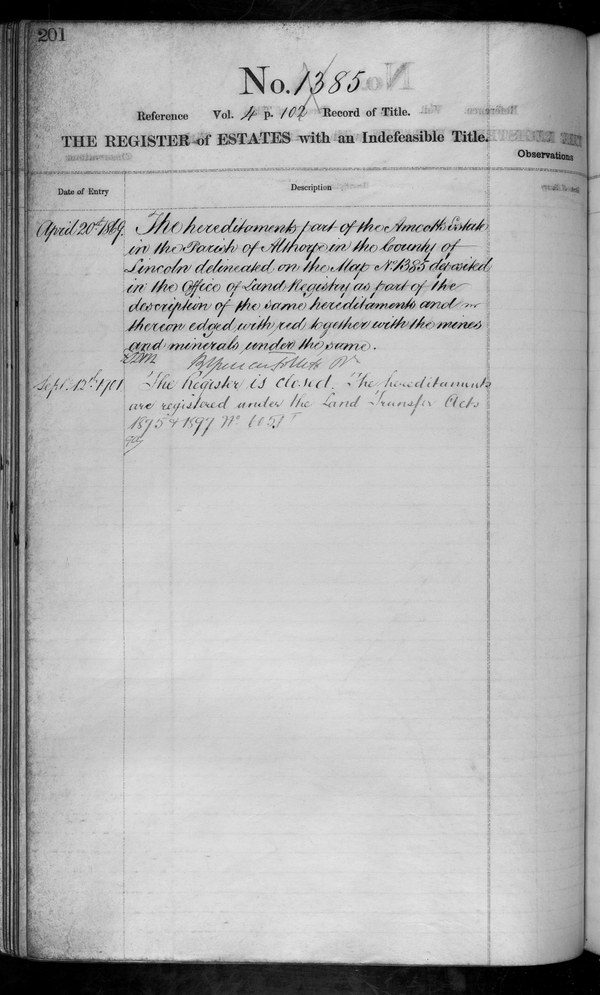 201
No. 1385
Reference Vol. 4 p. 102 Record of Title.
THE REGISTER of ESTATES with an Indefeasible Title.
Observations
Date of Entry
Description
April 20th 1869. The hereditaments part of the Amcotts Estate
in the Parish of Althorpe in the County of
Lincoln delineated on the Map No 1385 deposited
in the Office of Land Registry as part of the
description of the same hereditaments and
thereon edged with red together with the mines
and minerals under the same.
Sept. 12th 1901 The Register is closed. The hereditaments
are registered under the Land Transfer Acts
1875 & 1897 No 6051